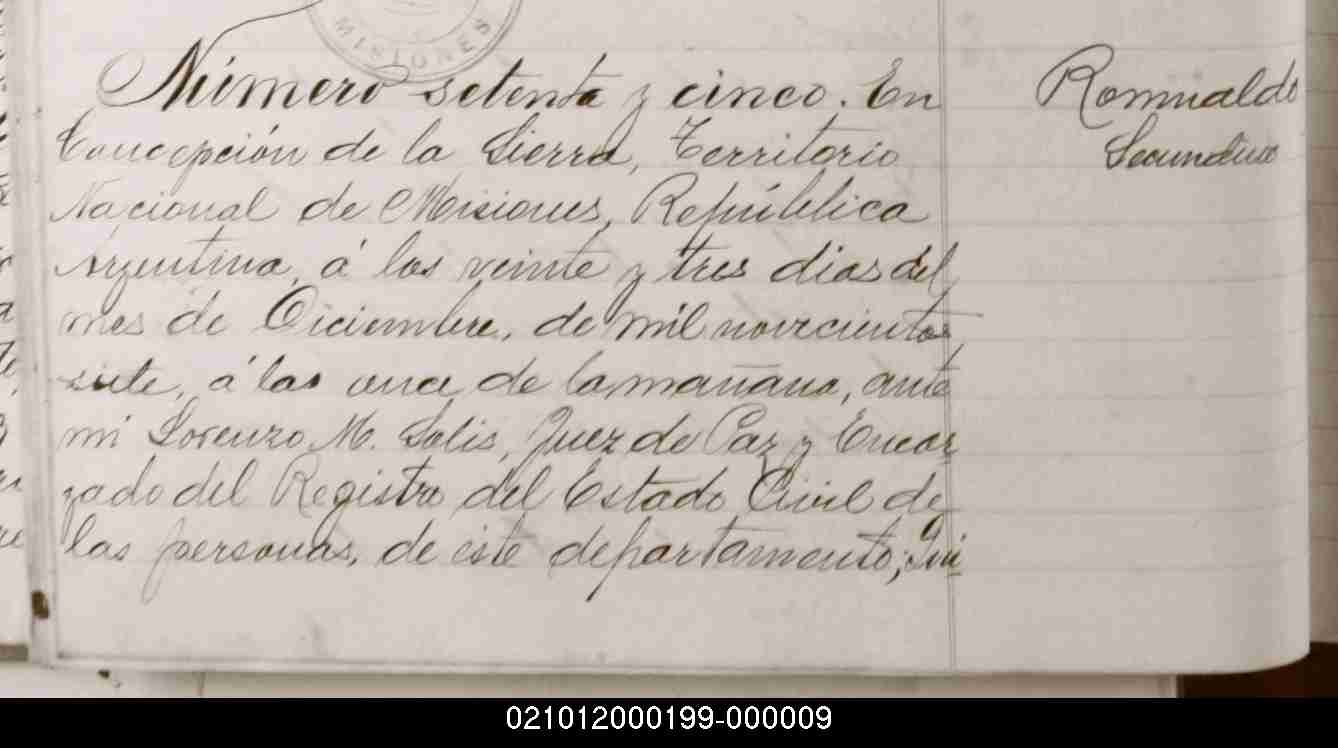 MISIONES
Número setenta y cinco. En
Concepción de la Sierra, Territorio
Nacional de Misiones, República
Argentina, á los veinte y tres dias del
mes de Diciembre, de mil novecientos
siete, á las once de la mañana, ante
mi Lorenzo M. Solis, Juez de Paz y Encar
gado del Registro del Estado Civil de
las personas, de este departamento;
Romualdo
Secundino
021012000199-000009